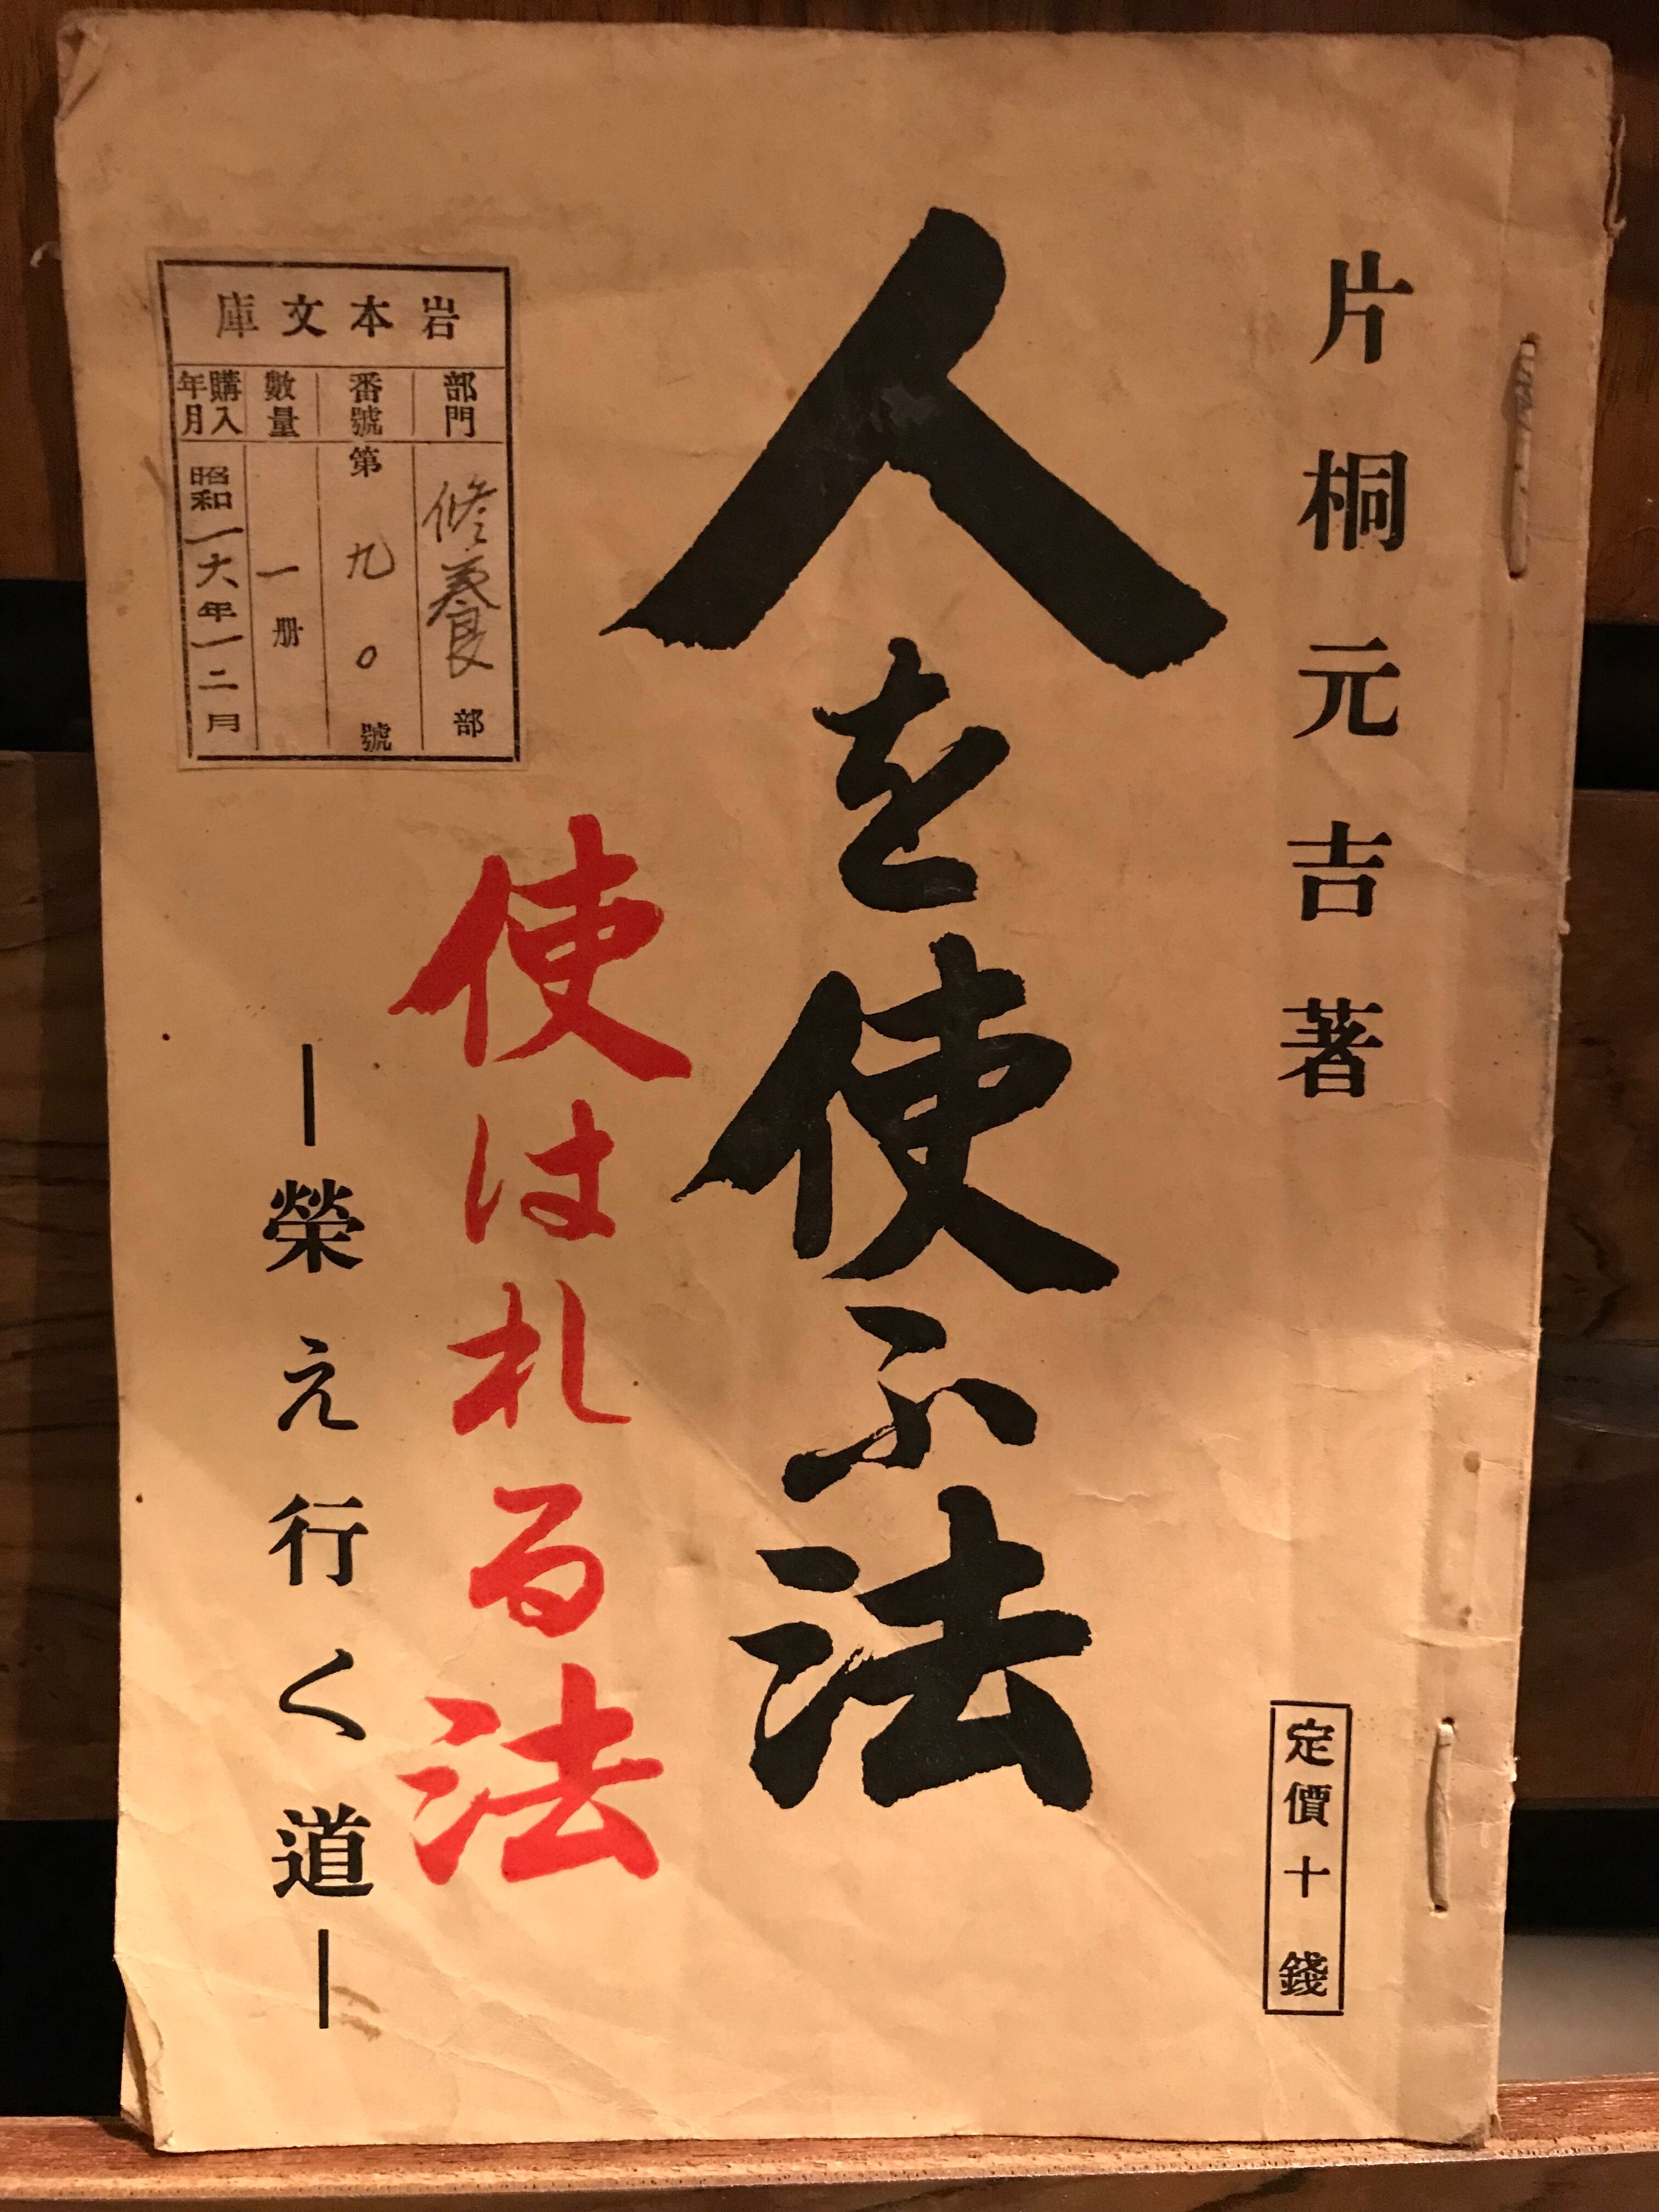 片桐元吉著
人を使ふ法
使はれる法
―榮え行く道―
定價十錢
岩本文庫
部門 修養部
番號 第九〇號
數量 一册
購入年月 昭和一六年一二月